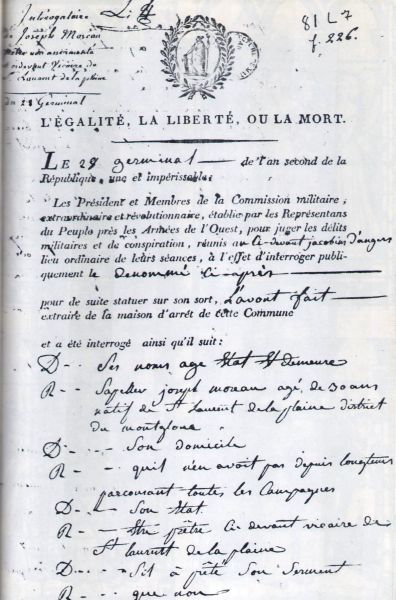 Interrogatoire
de Joseph Moreau
prêtre non assermenté
ci devant Vicaire de
St Laurent de la plaine
du 28 Germinal
81 L 7
f. 226.
L'ÉGALITÉ, LA LIBERTÉ, OU LA MORT.
LE 28 germinal de l'an second de la
République, une et impérissable.
Les Président et Membres de la Commission militaire,
extraordinaire et révolutionnaire, établie par les Représentans
du Peuple près les Armées de l'Ouest, pour juger les délits
militaires et de conspiration, réunis au Ci-devant jacobins d'angers
lieu ordinaire de leurs séances, à l'effet d'interroger publi-
quement le denommé Ci-après
pour de suite statuer sur son sort, L'avont fait
extraire de la maison d'arrêt de cette Commune
et a été interrogé ainsi qu'il suit :
D - - Ses noms age Etat Et demeure
R - - Sapeller joseph moreau agé de 30 ans
natif de St Laurent de la plaine district
du montglone
D - - - Son domicile
R - - - quil n'en avoit pas depuis longtems
parcourant toutes les Campagnes
D - - - Son Etat
R - - Etre prêtre Ci devant vicaire de
St laurent de la plaine
D - - - Sil a prêté Son Serment
R - - que non